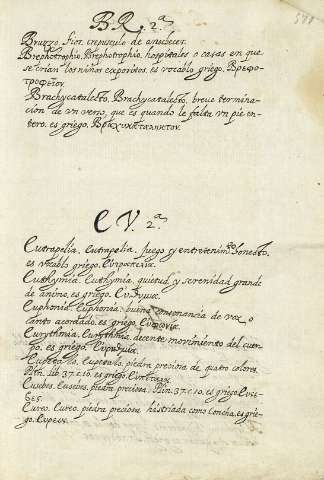 B. R. 2.ª
Bruzzo, Fior, crepusculo de anochecer.
Brephotrophio, Brephotrophio, hospitales o casas en que
se crian los niños expositos, es vocablo griego, Βρεφο-
τροφεῖον.
Brachycatalecto, Brachycatalecto, breve termina-
ción de vn verso, que es quando le falta vn pie en-
tero, es griego, Βραχυκατάληκτον.
E V. 2.ª
Eutrapelia, Eutrapelia, juego y entretenim.to honesto,
es vocablo griego, Ευτραπελια.
Euthymia, Euthymia, quietud y serenidad grande
de animo, es griego, Ευθυμια.
Euphonia, Euphonia, buena consonancia de voz o
canto acordado, es griego, Ευφωνία.
Eurythmia, Eurythmia, decente movimiento del cuer-
po, es griego, Ευρυθμία.
piedra preciosa de quatro colores.
Plin. lib. 37. c. 10. es griego,
Eusebes, Eusebes, piedra preciosa. Plin. 37. c. 10. es griego, Ευσε-
βες.
Eureo, Eureo, piedra preciosa histriada como concha, es grie-
go,